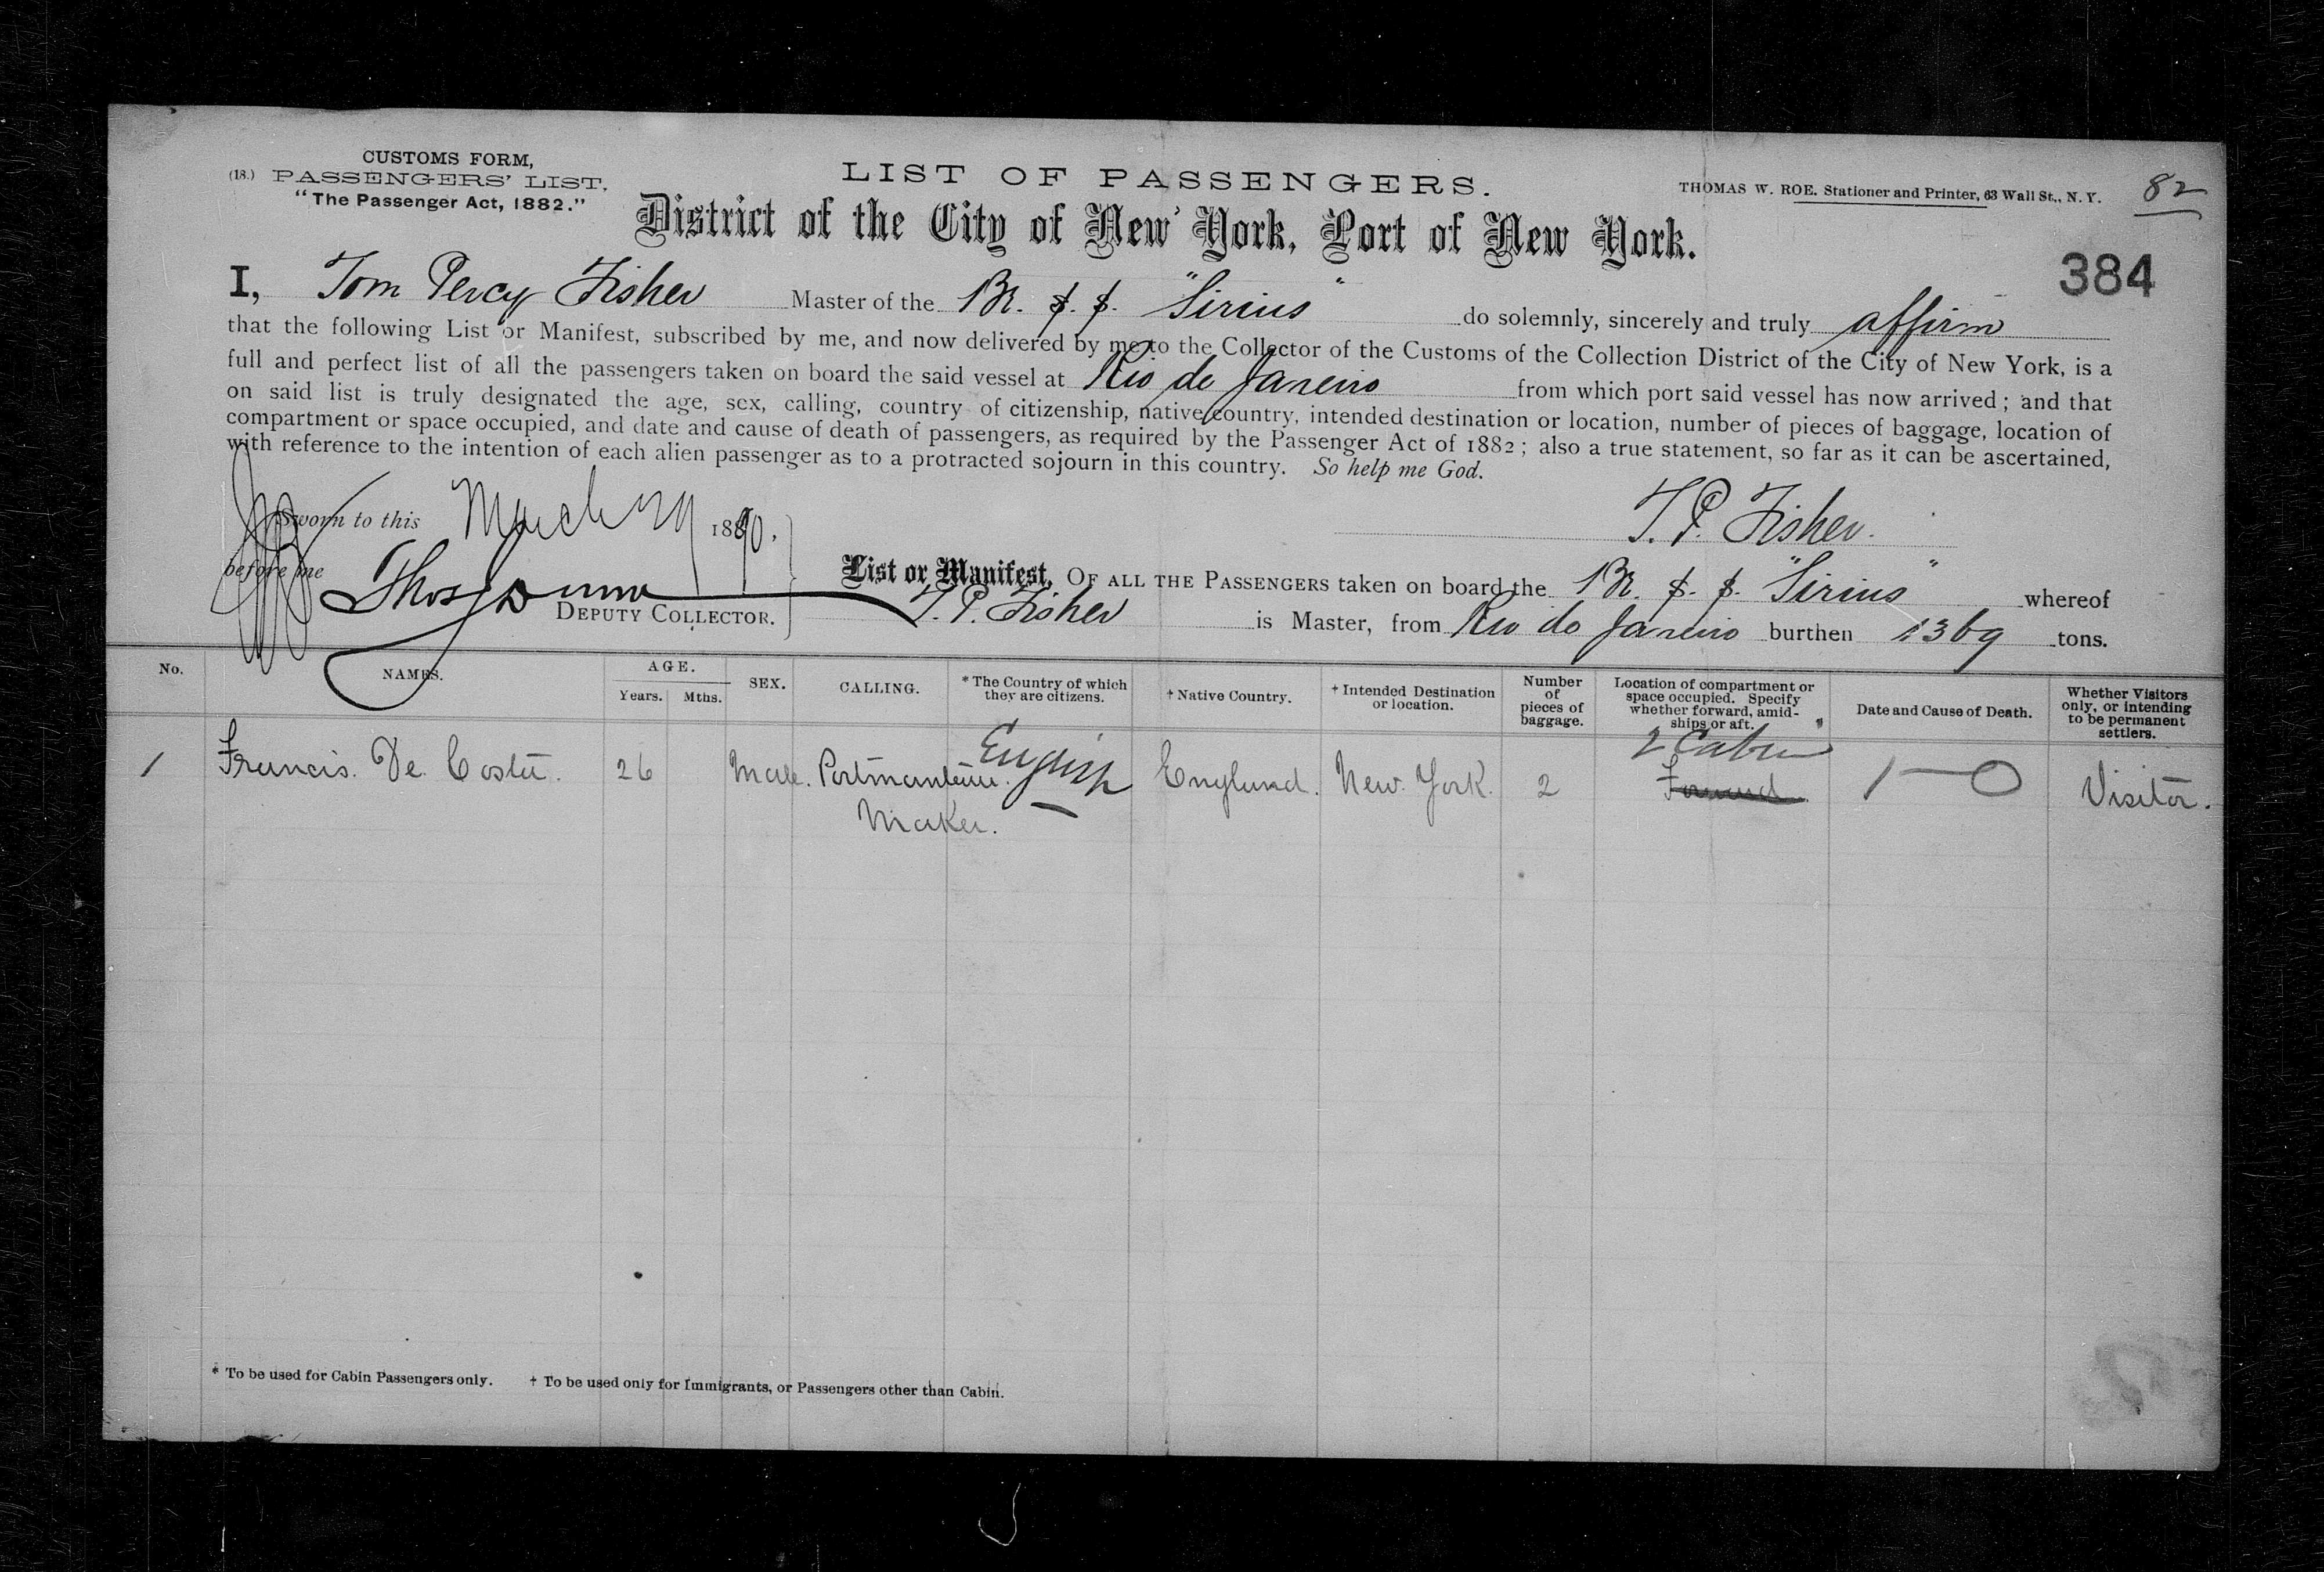 CUSTOMS FORM,
(18.) PASSENGERS' LIST.
"The Passenger Act, 1882."
LIST OF PASSENGERS.
THOMAS W. ROE. Stationer and Printer, 63 Wall St., N. Y.
82
District of the City of New York, Port of New York.
384
I, Tom Percy Fisher Master of the Br. S. S. "Sirius" do solemnly, sincerely and truly affirm
that the following List or Manifest, subscribed by me, and now delivered by me to the Collector of the Customs of the Collection District of the City of New York, is a
full and perfect list of all the passengers taken on board the said vessel at Rio de Janeiro from which port said vessel has now arrived; and that
on said list is truly designated the age, sex, calling, country of citizenship, native country, intended destination or location, number of pieces of baggage, location of
compartment or space occupied, and date and cause of death of passengers, as required by the Passenger Act of 1882; also a true statement, so far as it can be ascertained,
with reference to the intention of each alien passenger as to a protracted sojourn in this country. So help me God.
Sworn to this March 1890.
T. P. Fisher.
before me Thos
DEPUTY COLLECTOR.
List or Manifest, OF ALL THE PASSENGERS taken on board the Br. S. S. "Sirius" whereof
T. P. Fisher is Master, from Rio de Janeiro burthen 1369 tons.
No. NAMES. AGE. Years. Mths. SEX. CALLING. * The Country of which they are citizens. † Native Country. † Intended Destination or location. Number of pieces of baggage. Location of compartment or space occupied. Specify whether forward, amidships or aft. Date and Cause of Death. Whether Visitors only, or intending to be permanent settlers.
2 Cabin
1 Francis. De. Costa. 26 Male. Portmanteau. English England. New. York. 2 1—0 Visitor.
Maker.
* To be used for Cabin Passengers only. † To be used only for Immigrants, or Passengers other than Cabin.